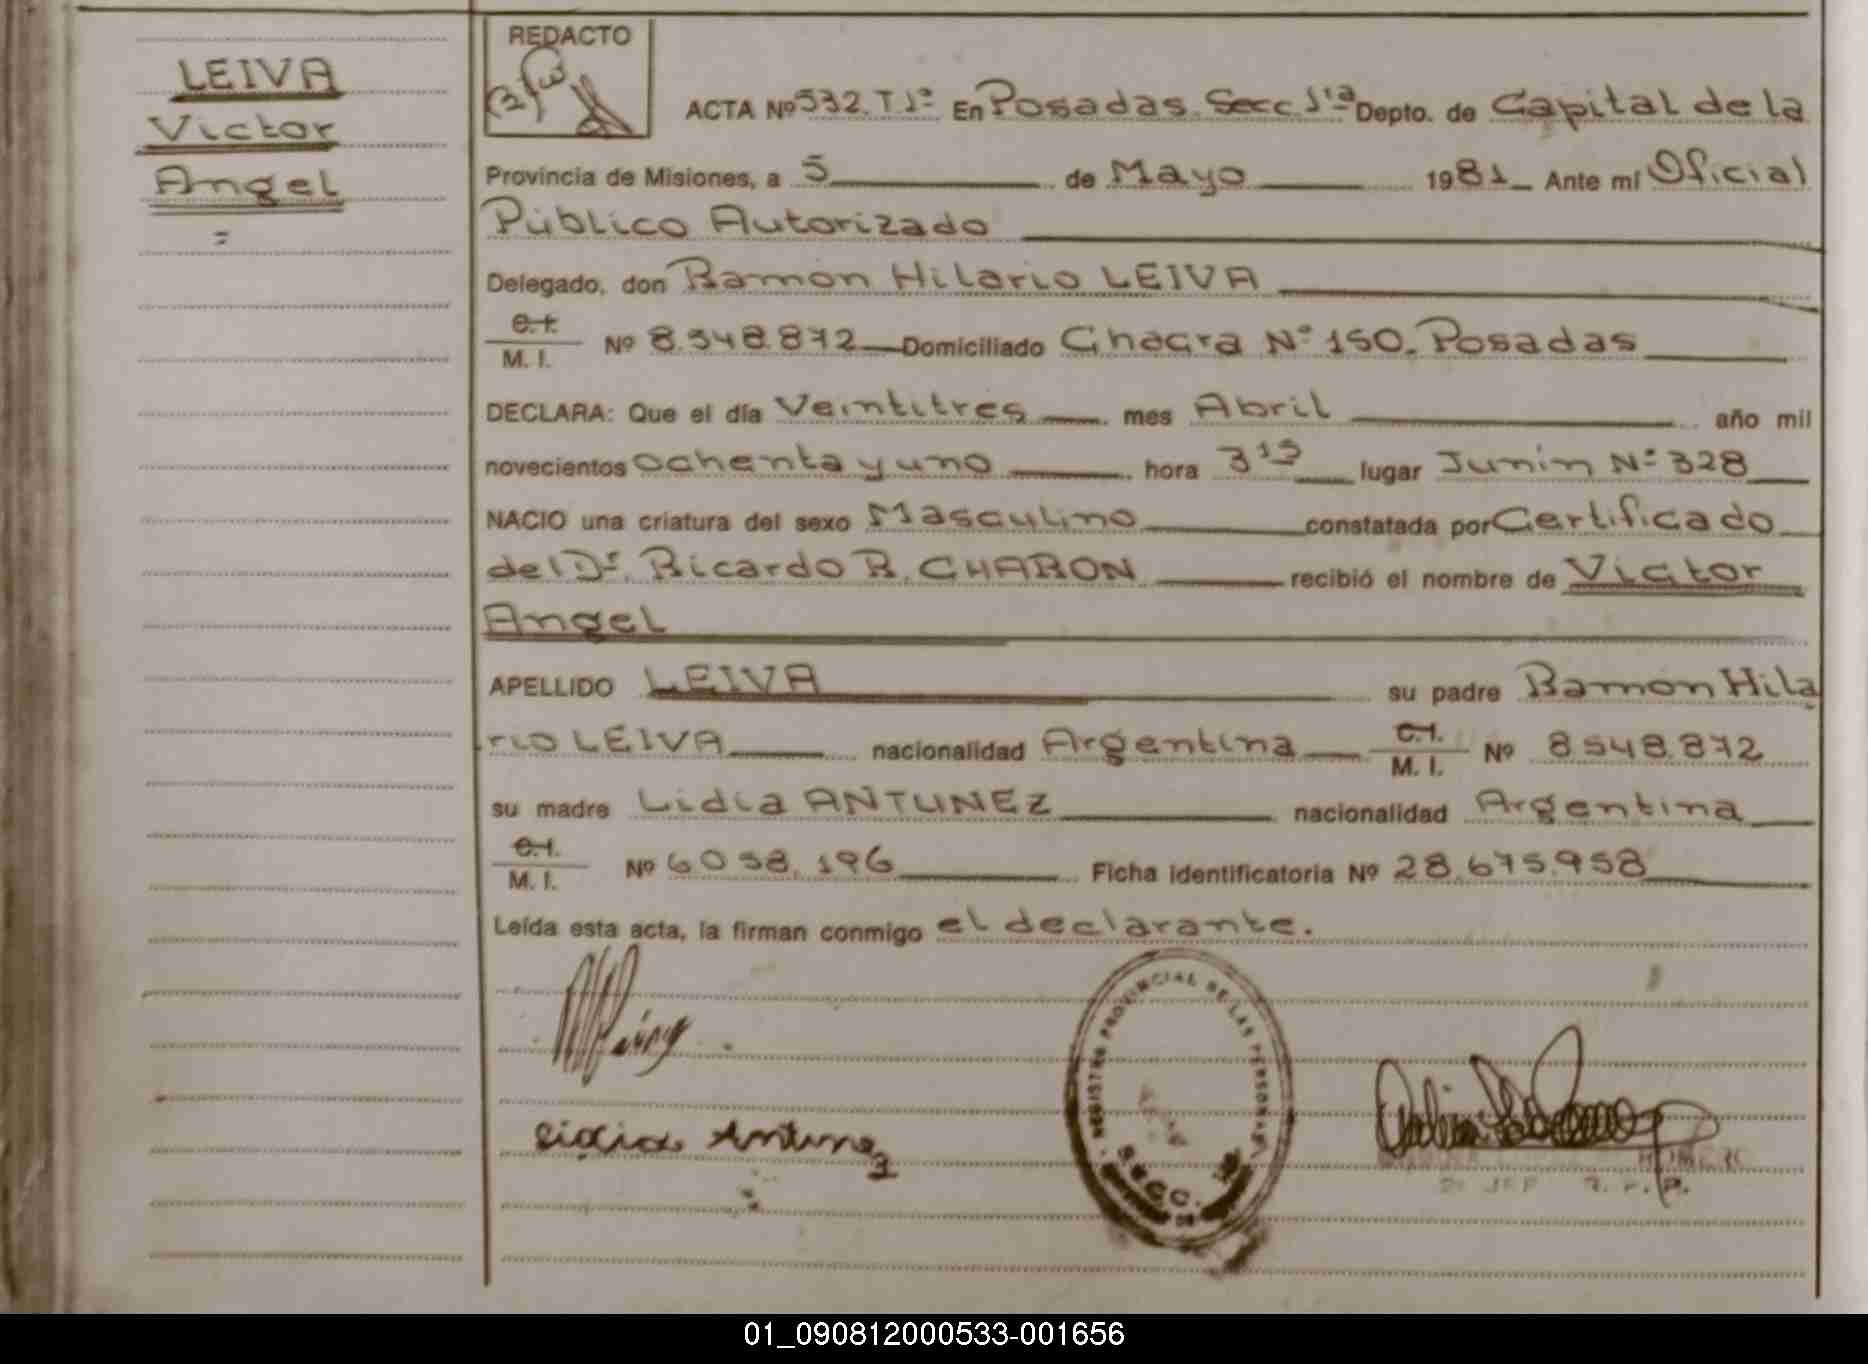 LEIVA
Victor
Angel
=
REDACTO
ACTA Nº 532. T 1º En Posadas. Secc. 1ra Depto. de Capital de la
Provincia de Misiones, a 5 de Mayo 1981 Ante mí Oficial
Público Autorizado
Delegado, don Ramon Hilario LEIVA
C.I. M. I. Nº 8.548.872 Domiciliado Chacra Nº 150. Posadas
DECLARA: Que el día Veintitres mes Abril año mil
novecientos ochenta y uno hora 3 15 lugar Junin Nº 328
NACIO una criatura del sexo Masculino constatada por Certificado
del Dr. Ricardo R. CHARON recibió el nombre de Victor
Angel
APELLIDO LEIVA su padre Ramon Hila
rio LEIVA nacionalidad Argentina C.I. M. I. Nº 8548.872
su madre Lidia ANTUNEZ nacionalidad Argentina
C.I. M. I. Nº 6058.196 Ficha identificatoria Nº 28.675.958
Leída esta acta, la firman conmigo el declarante.
REGISTRO PROVINCIAL DE LAS PERSONAS
Lidia Antunez
01_090812000533-001656